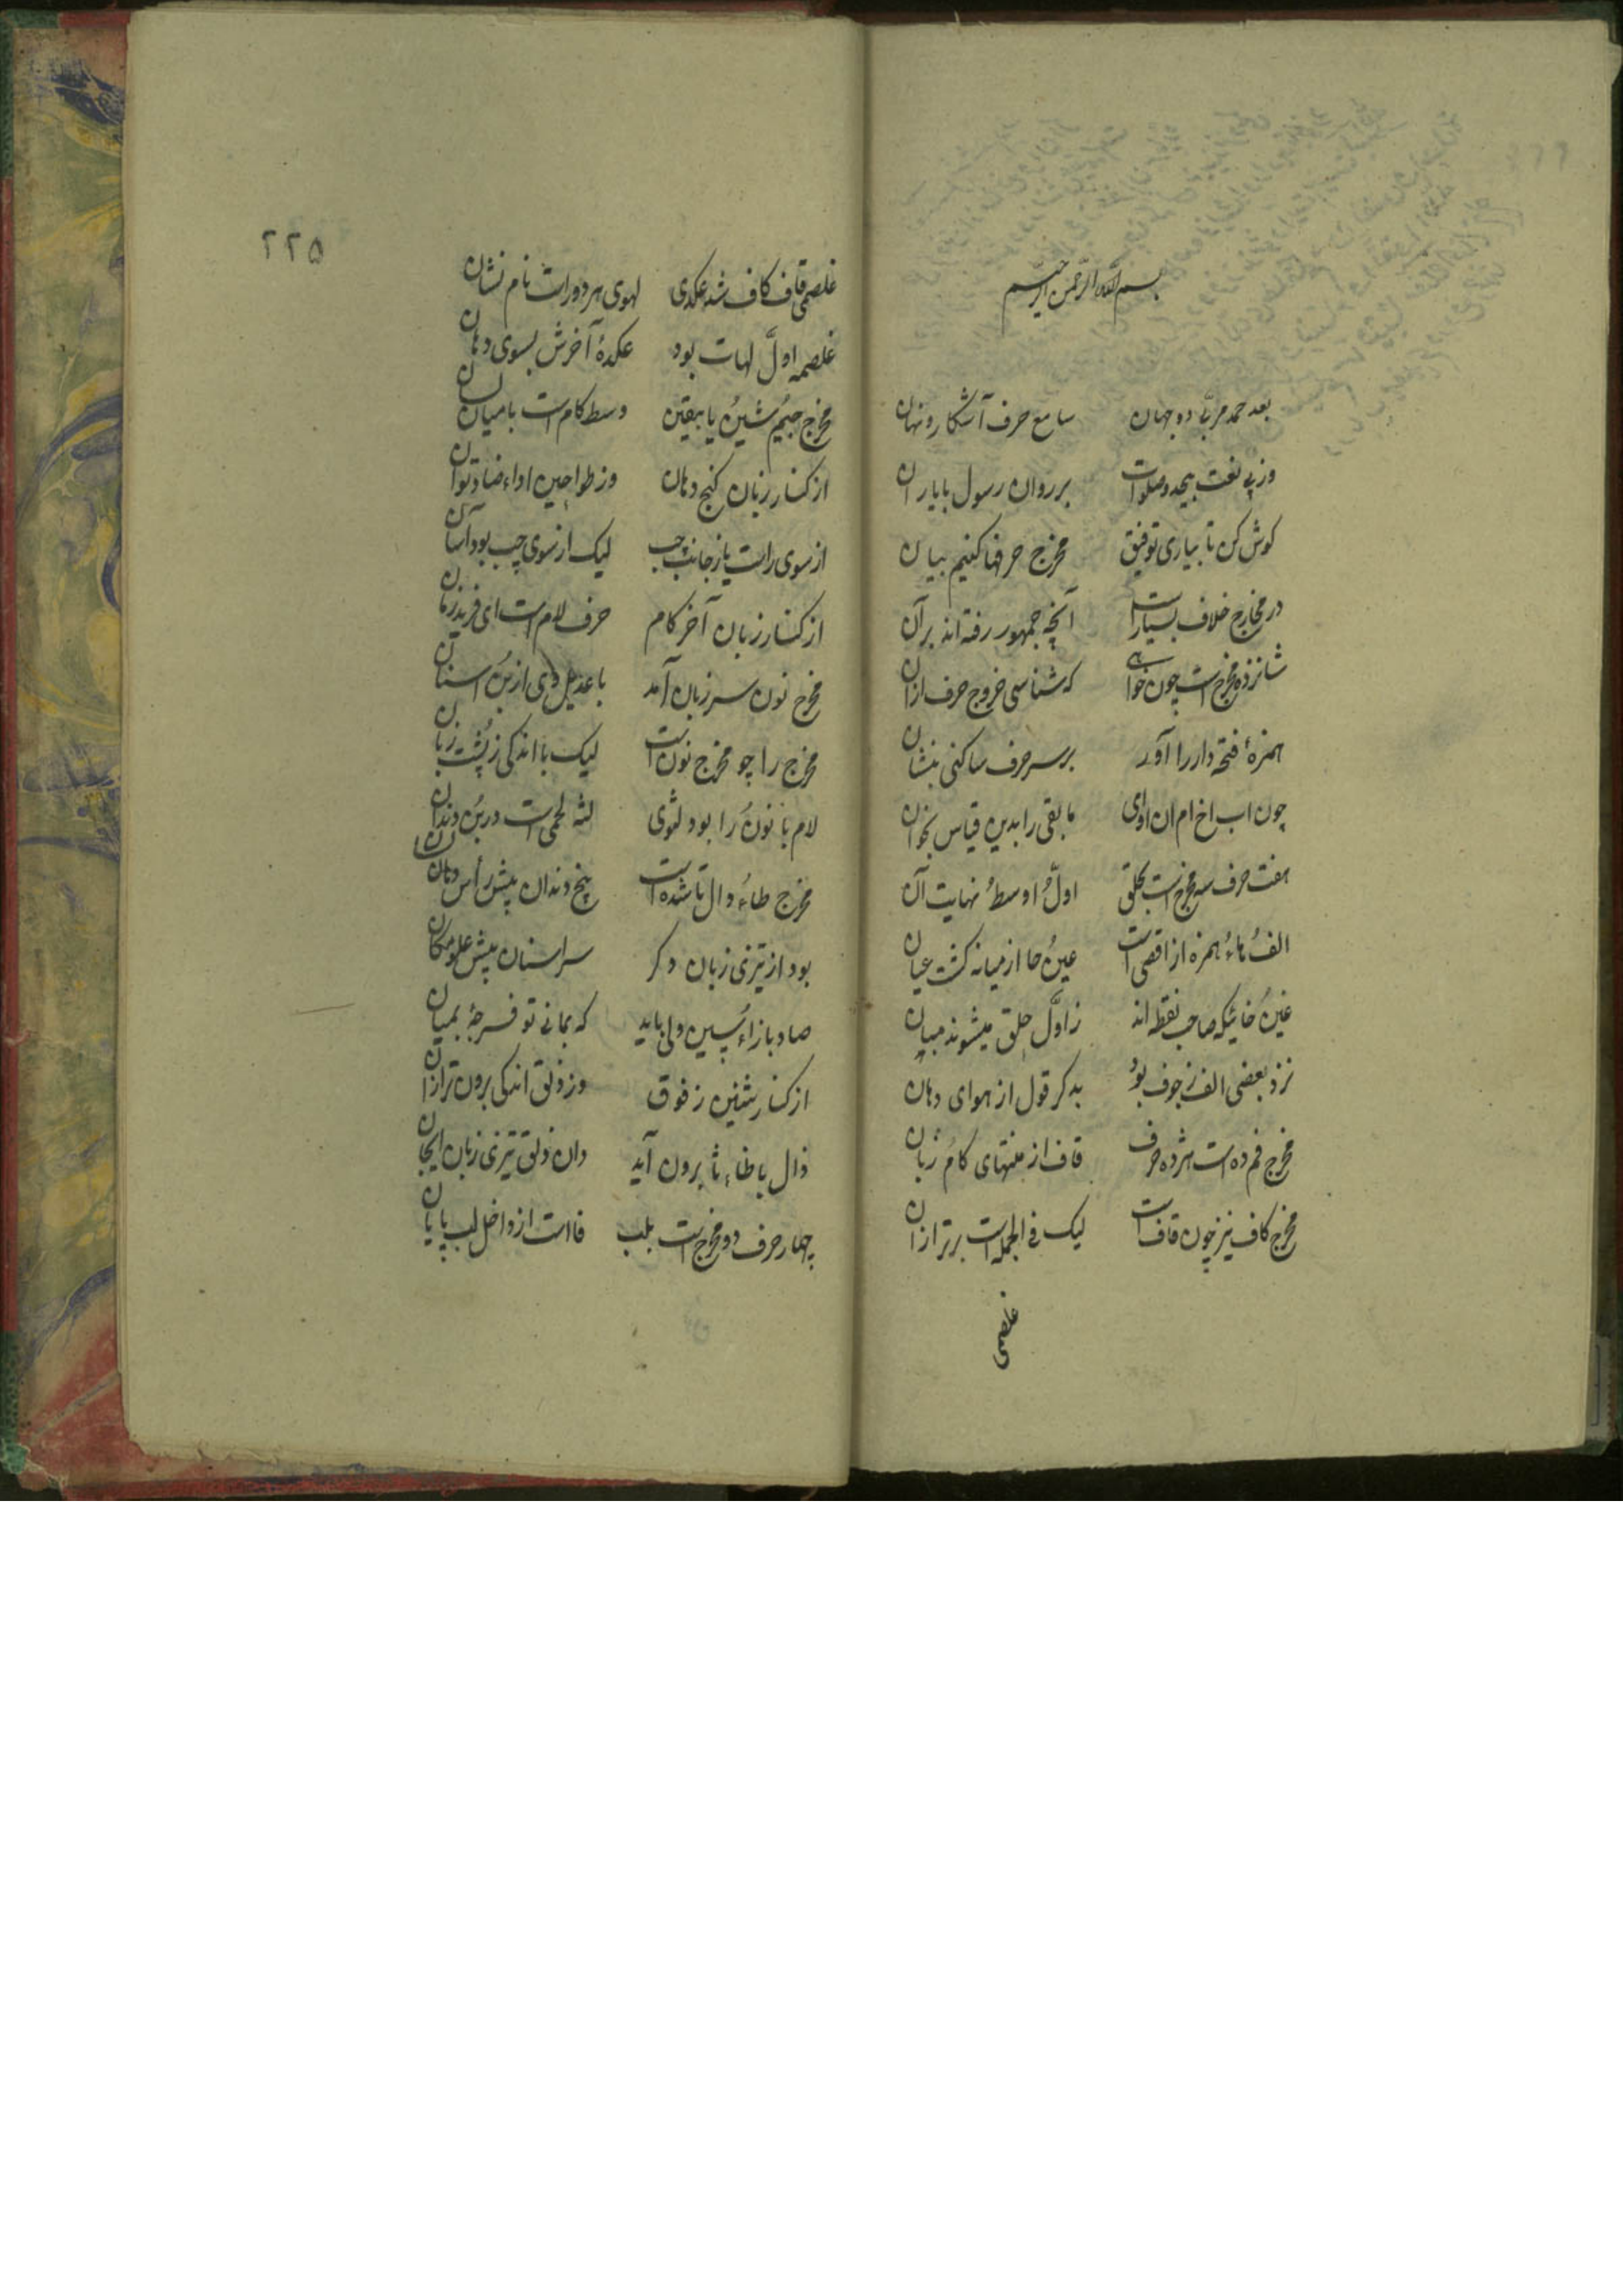 بسم الله الرحمن الرحیم
بعد حمد مربّ دو جهان سامع حرف آشکار و نهان
وز پی نعت بیحد و صلوات بر روان رسول با یاران
کوش کن تا بیاری توفیق مخرج حرفها کنیم بیان
در مخارج خلاف بسیار است آنچه جمهور رفته اند بر آن
شانزده مخرج است چون خواهی که شناسی خروج حرف ازان
همزهٔ فتحه دار را آور بر سر حرف ساکنی بنشان
چون اب اخ ام ان او ای مابقی را بدین قیاس بخوان
هفت حرف سه مخرج است بحلق اولُ اوسطُ نهایت آن
الفُ هاءُ همزه از اقصی است عینُ حا از میانه کشت عیان
غینُ خائیکه صاحب نقطه اند ز اوّل حلق میشوند مبیان
نزد بعضی الف ز جوف بود بدکر قول از هوای دهان
مخرج فم ده است هژده حرف قاف از منتهای کامُ زبان
مخرج کاف نیز چون قاف است لیک فی الجمله است برتر ازان
غلصمی
۲۲۵
غلصمی قاف کاف شد عکدی لهوی هر دو راست نام نشان
غلصمه اولّ لهات بود عکدهٔ آخرش بسوی دهان
مخرج جیمُ شینُ یا بیقین وسط کام است با میان لسان
از کنار زبان کنج دهان وز طواحین اداء ضاد توان
از سوی راست یا ز جانب چپ لیک از سوی چپ بود آسان
از کنار زبان آخر کام حرف لام است ای فرید زمان
مخرج نون سر زبان آمد با عدیل وی از بُن اسنان
مخرج را چو مخرج نون است لیک با اندکی ز پُشت زبان
لام با نونُ را بود لثوی لثه لحمی است در بُن دندان
مخرج طاءُ دال تا شده است پنج دندان پیش رأس لسان
بود از تیزی زبان دکر سر اسنان پیش علو مکان
صاد با زاءُ سین ولی باید که بمانی تو فرجهٔ بمیان
از کنار ثنین ز فوق وز ذلق اندکی برون تر ازان
ذال با ظاء ثا برون آید دان ذلق تیزی زبان ایجان
چهار حرف دو مخرج است بلب فا است از داخل لب پایان